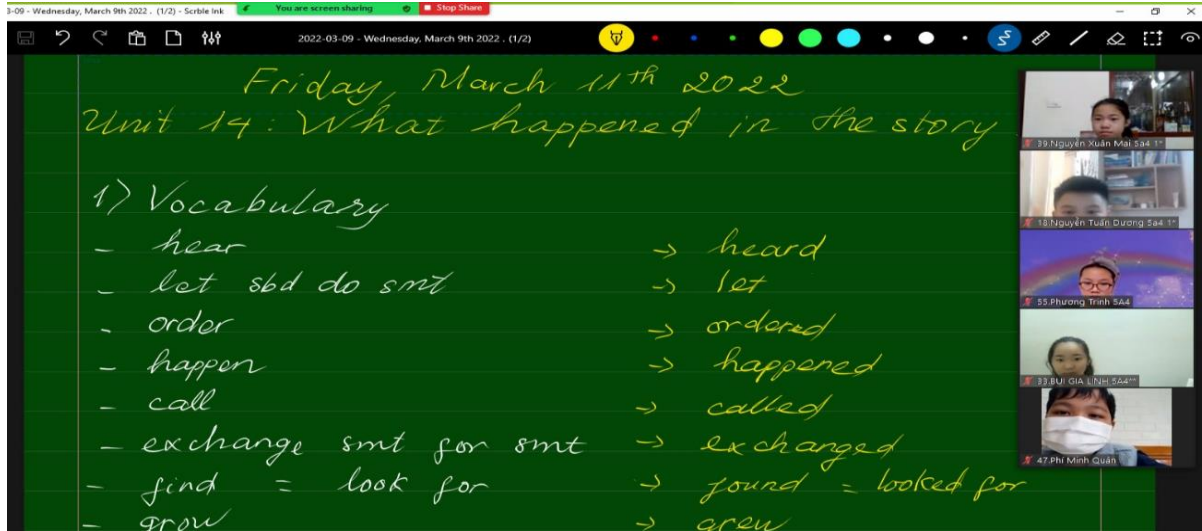 3-09 - Wednesday, March 9th 2022 . (1/2) - Scrble Ink
You are screen sharing
Stop Share
2022-03-09 - Wednesday, March 9th 2022 . (1/2)
Friday, March 11th 2022
Unit 14 : What happened in the story
1) Vocabulary
- hear -> heard
- let sbd do smt -> let
- order -> ordered
- happen -> happened
- call -> called
- exchange smt for smt -> exchanged
- find = look for -> found = looked for
- grow -> grew
39.Nguyễn Xuân Mai 5a4 1*
18.Nguyễn Tuấn Dương 5a4 1*
55.Phương Trinh 5A4
33.BUI GIA LINH 5A4**
47.Phí Minh Quân